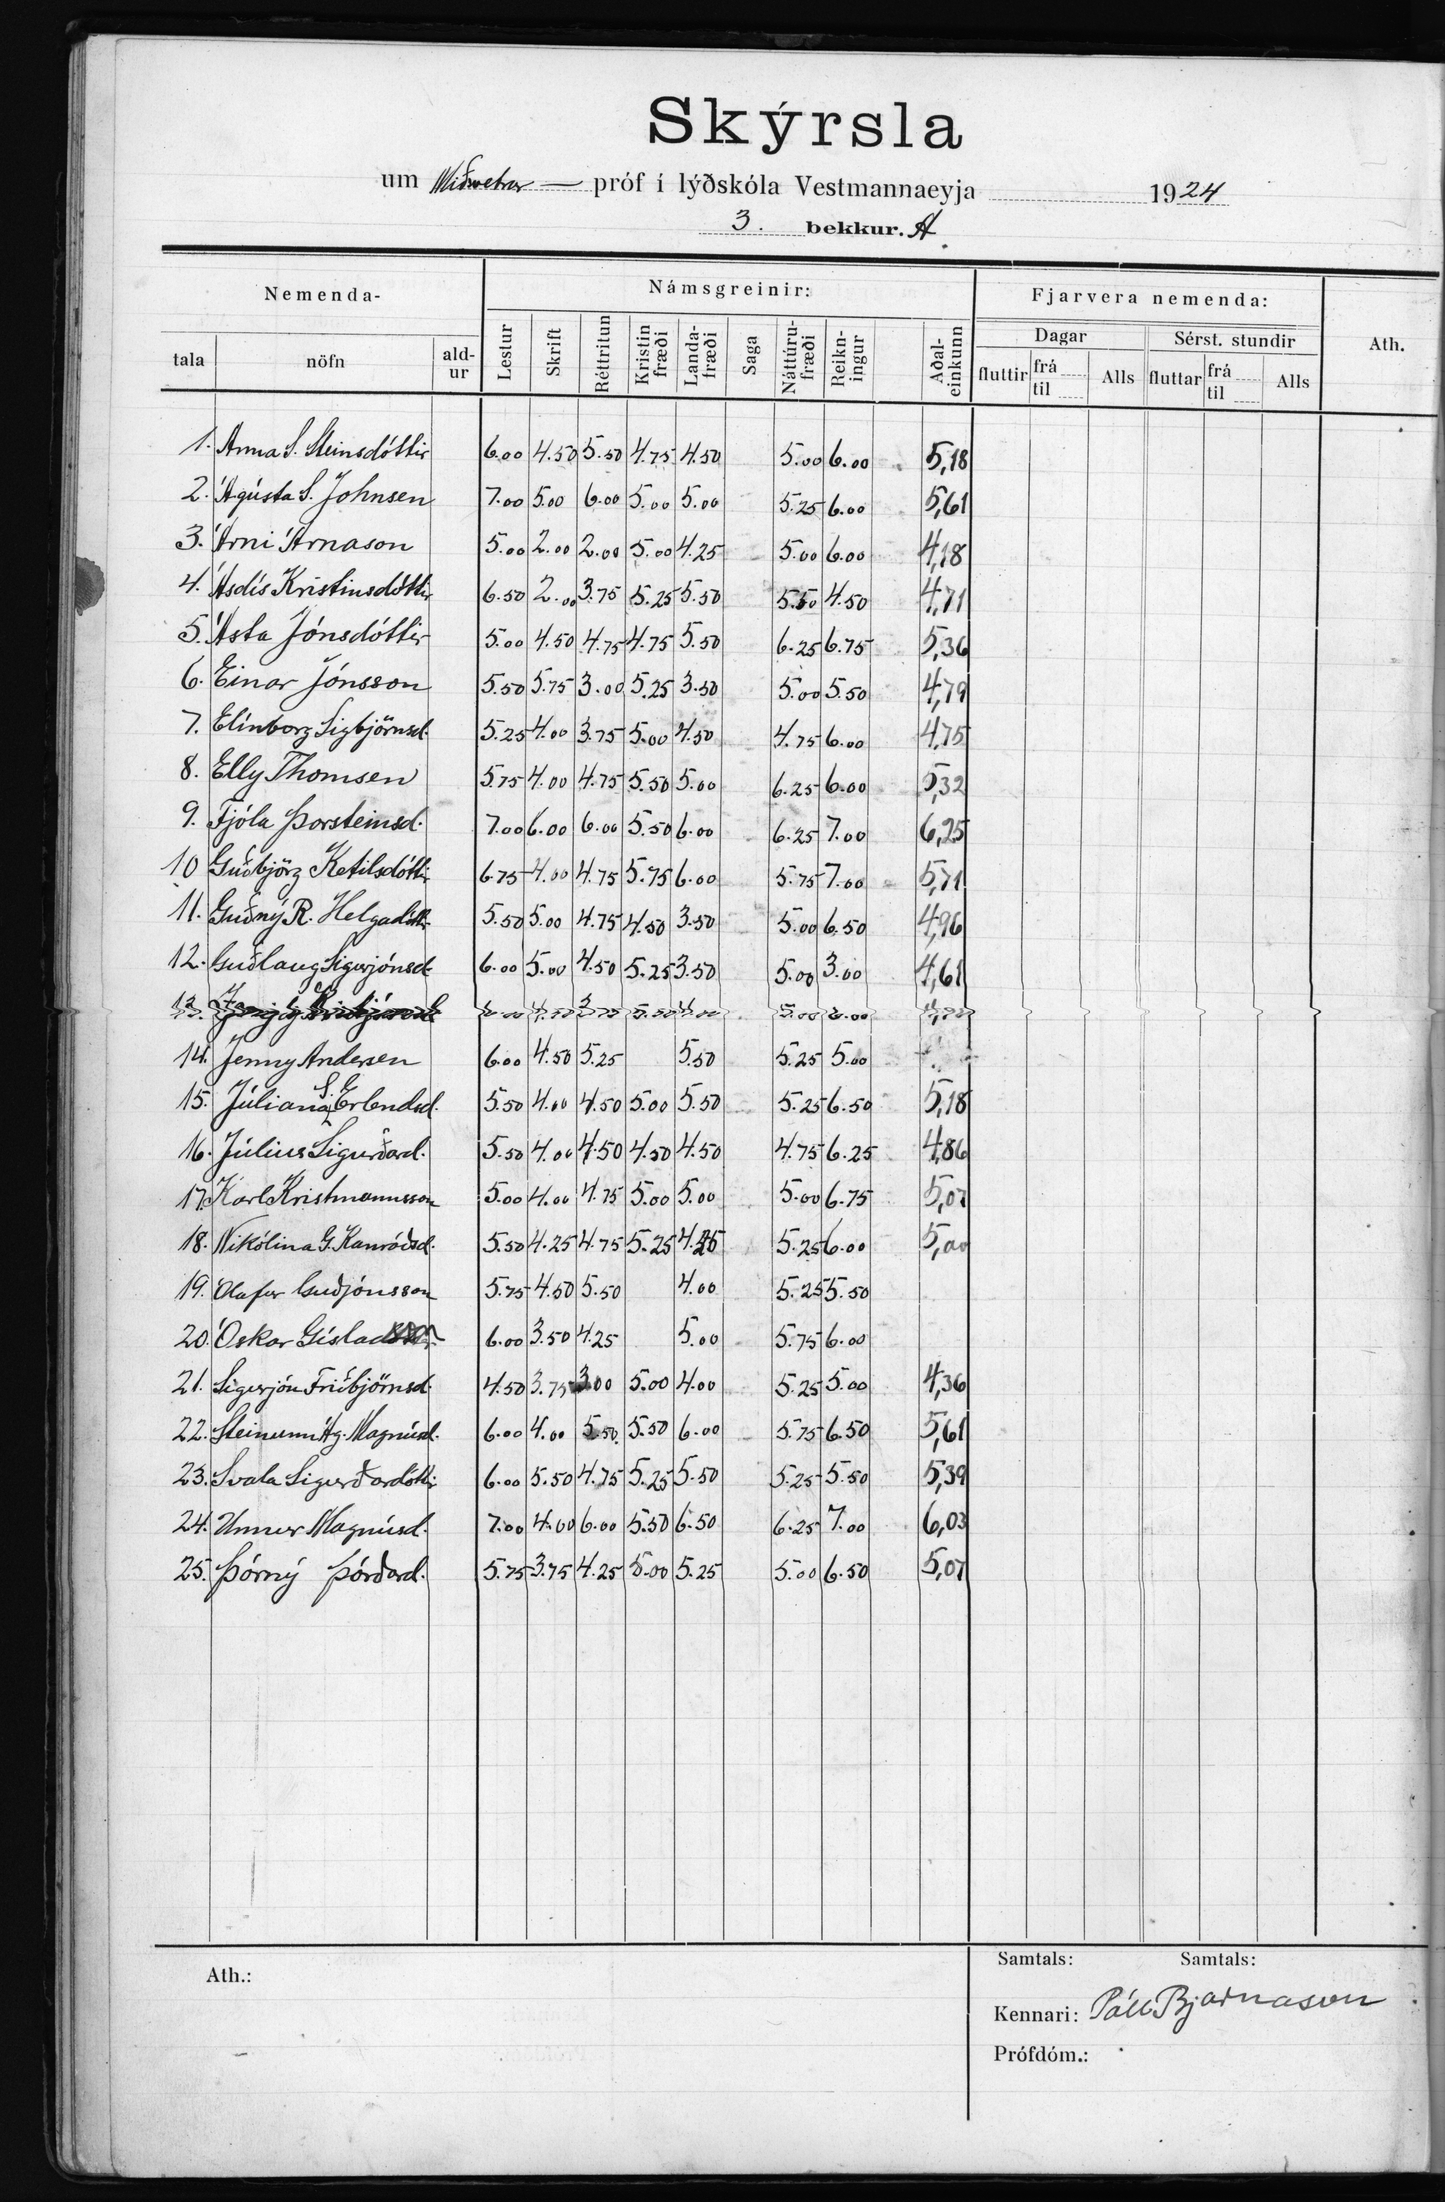 Skýrsla
um Miðsvetrar — próf í lýðskóla Vestmannaeyja 1924
3. bekkur. A.
Nemenda- Námsgreinir: Fjarvera nemenda:
tala nöfn ald-ur Lestur Skrift Réttritun Kristin fræði Landa-fræði Saga Náttúru-fræði Reikn-ingur Aðal-einkunn Dagar Sérst. stundir Ath.
fluttir frá til Alls fluttar frá til Alls
1. Anna S. Steinsdóttir 6.00 4.50 5.50 4.75 4.50 5.00 6.00 5,18
2. Ágústa S. Johnsen 7.00 5.00 6.00 5.00 5.00 5.25 6.00 5,61
3. Árni Árnason 5.00 2.00 2.00 5.00 4.25 5.00 6.00 4,18
4. Ásdís Kristinsdóttir 6.50 2.00 3.75 5.25 5.50 5.50 4.50 4,71
5. Ásta Jónsdóttir 5.00 4.50 4.75 4.75 5.50 6.25 6.75 5,36
6. Einar Jónsson 5.50 5.75 3.00 5.25 3.50 5.00 5.50 4,79
7. Elínborg Sigbjörnsd. 5.25 4.00 3.75 5.00 4.50 4.75 6.00 4,75
8. Elly Thomsen 5.75 4.00 4.75 5.50 5.00 6.25 6.00 5,32
9. Fjóla Þorsteinsd. 7.00 6.00 6.00 5.50 6.00 6.25 7.00 6,25
10 Guðbjörg Ketilsdóttir 6.75 4.00 4.75 5.75 6.00 5.75 7.00 5,71
11. Guðný R. Helgadóttir 5.50 5.00 4.75 4.50 3.50 5.00 6.50 4,96
12. Guðlaug Sigurjónsd. 6.00 5.00 4.50 5.25 3.50 5.00 3.00 4,61
13. 6.00 4.50 3.75 5.50 4.00 5.00 6.00
14. Jenny Andersen 6.00 4.50 5.25 5.50 5.25 5.00
15. Júliana S. Erlendsd. 5.50 4.00 4.50 5.00 5.50 5.25 6.50 5,18
16. Júlíus Sigurðard. 5.50 4.00 4.50 4.50 4.50 4.75 6.25 4,86
17. Karl Kristmannsson 5.00 4.00 4.75 5.00 5.00 5.00 6.75 5,07
18. Nikólína G. Kanróðsd. 5.50 4.25 4.75 5.25 4.25 5.25 6.00 5,00
19. Ólafur Guðjónsson 5.75 4.50 5.50 4.00 5.25 5.50
20. Óskar Gíslason 6.00 3.50 4.25 5.00 5.75 6.00
21. Sigurjón Friðbjörnsd. 4.50 3.75 3.00 5.00 4.00 5.25 5.00 4,36
22. Steinunn Ág. Magnúsd. 6.00 4.00 5.50 5.50 6.00 5.75 6.50 5,61
23. Svala Sigurðardóttir 6.00 5.50 4.75 5.25 5.50 5.25 5.50 5,39
24. Unnur Magnúsd. 7.00 4.00 6.00 5.50 6.50 6.25 7.00 6,03
25. Þórný Þórðard. 5.75 3.75 4.25 5.00 5.25 5.00 6.50 5,07
Samtals: Samtals:
Ath.:
Kennari: Páll Bjarnason
Prófdóm.: